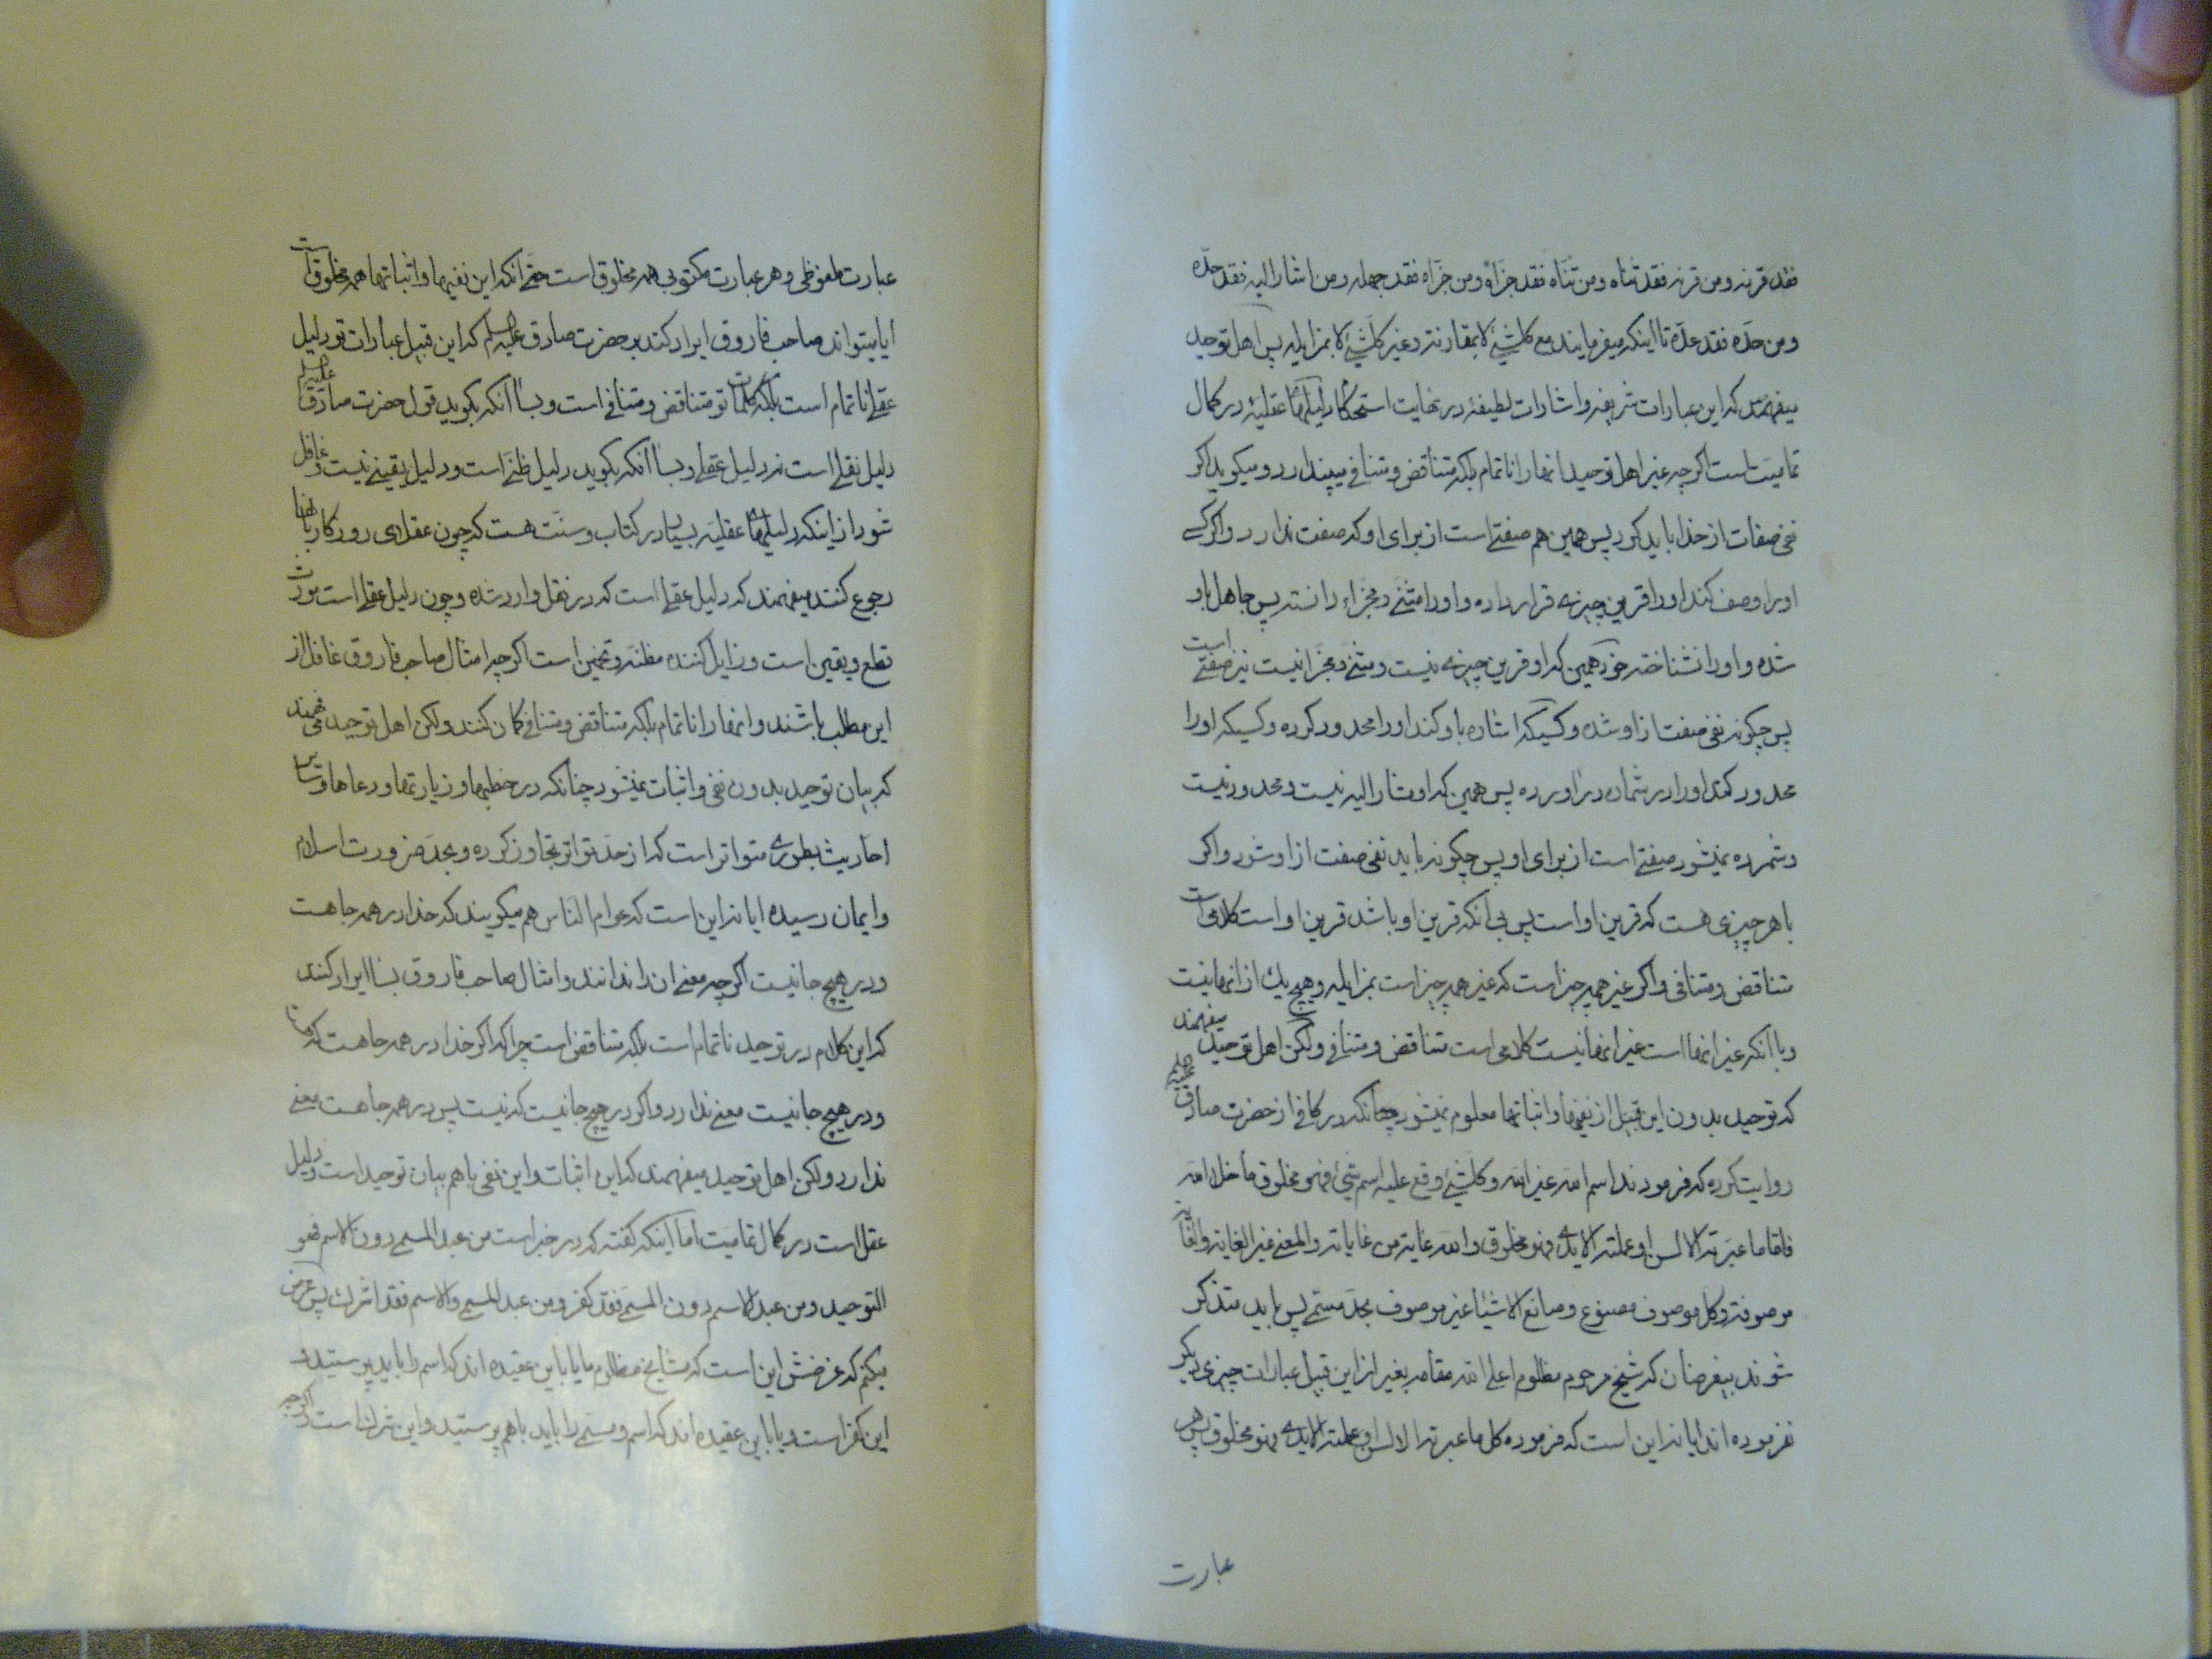 فقد قرنه و من قرنه فقد ثناه و من ثناه فقد جزاه و من جزاه فقد جهله و من اشار الیه فقد حدّه
و من حدّه فقد عدّه تا اینکه میفرمایند مع کلشیئ لا بمقارنته و غیر کلشیئ لا بمزایله پس اهل توحید
میفهمند که این عبارات شریفه و اشارات لطیفه در نهایت استحکام دلیلهای عقلیه در کمال
تمامیت است اگر چه غیر اهل توحید انها را ناتمام بلکه متناقض و متنافی میپندارد و میگوید اگر
نفی صفات از خدا باید کرد پس همین هم صفتی است از برای او که صفت ندارد و اگر کسی
او را وصف کند او را قرین چیزی قرار داده و او را مثنّی و مجزاء دانسته پس جاهل باو
شده و او را نشناخته خود همین که او قرین چیزی نیست و مثنی و مجزا نیست نیز صفتی است
پس چگونه نفی صفت از او شده و کسیکه اشاره باو کند او را محدود کرده و کسیکه او را
محدود کند او را در شماره در اورده پس همین که او مشار الیه نیست و محدود نیست
و شمرده نمیشود صفتی است از برای او پس چگونه باید نفی صفت از او شود و اگر
با هر چیزی هست که قرین او است پس بی آنکه قرین او باشد قرین او است کلامی است
متناقض و متنافی و اگر غیر همه چیز است که غیر همه چیز است بمزایله و هیچ یک از انها نیست
و با انکه غیر انها است غیر انها نیست کلامی است متناقض و متنافی ولکن اهل توحید میفهمند
که توحید بدون این قبیل از نفیها و اثباتها معلوم نمیشود چنانکه در کافی از حضرت صادق علیه السلم
روایت کرده که فرمودند اسم الله غیر الله و کلشیئ وقع علیه اسم شیئ فهو مخلوق ما خلا الله
فاما ما عبرته الالسن او عملته الایدی فهو مخلوق و الله غایة من غایاته و المعنی غیر الغایة و الغایه
موصوفة و کل موصوف مصنوع و صانع الاشیاء غیر موصوف بحد مسمی پس باید متذکر
شوند بیغرضان که شیخ مرحوم مظلوم اعلی الله مقامه بغیر از این قبیل عبارات چیزی دیگر
نفرموده اند ایا نه این است که فرموده کل ما عبرته الالسن او عملته الایدی فهو مخلوق پس هر
عبارت
عبارت ملفوظی و هر عبارت مکتوبی همه مخلوق است حتی انکه این نفیها و اثباتها همه مخلوق است
ایا میتواند صاحب فاروق ایراد کند بر حضرت صادق علیه السلم که این قبیل عبارات تو دلیل
عقلی ناتمام است بلکه کلمات تو متناقض و متنافی است و بسا انکه بگوید قول حضرت صادق علیه السلم
دلیل نقلی است نه دلیل عقلی و بسا انکه بگوید دلیل ظنی است و دلیل یقینی نیست و غافل
شود از اینکه دلیلهای عقلیه بسیار در کتاب و سنت هست که چون عقلای روزگار بانها
رجوع کنند میفهمند که دلیل عقلی است که در نقل وارد شده و چون دلیل عقلی است مورث
قطع و یقین است و زایل کننده مظنه و تخمین است اگر چه امثال صاحب فاروق غافل از
این مطلب باشند و انها را ناتمام بلکه متناقض و متنافی گمان کنند ولکن اهل توحید میفهمند
که بیان توحید بدون نفی و اثبات نمیشود چنانکه در خطبها و زیارتها و دعاها و سایر
احادیث بطوری متواتر است که از حد تواتر تجاوز کرده و بحد ضرورت اسلام
و ایمان رسیده ایا نه این است که عوام الناس هم میگویند که خدا در همه جا هست
و در هیچ جا نیست اگر چه معنی ان را ندانند و امثال صاحب فاروق بسا ایراد کنند
که این کلام در توحید ناتمام است بلکه متناقض است چرا که اگر خدا در همه جا هست که هست
و در هیچ جا نیست معنی ندارد و اگر در هیچ جا نیست که نیست پس در همه جا هست معنی
ندارد ولکن اهل توحید میفهمند که این اثبات و این نفی با هم بیان توحید است و دلیل
عقل است در کمال تمامیت اما اینکه گفته که در خبر است من عبد المسمی دون الاسم فهو
التوحید و من عبد الاسم دون المسمی فقد کفر و من عبد المسمی و الاسم فقد اشرک پس عرض
میکنم که غرضش این است که مشایخ مظلوم ما یا باین عقیده اند که اسم را باید پرستید و
این کفر است و یا باین عقیده اند که اسم و مسمی را باید باهم پرستید و این شرک است و اگر چه